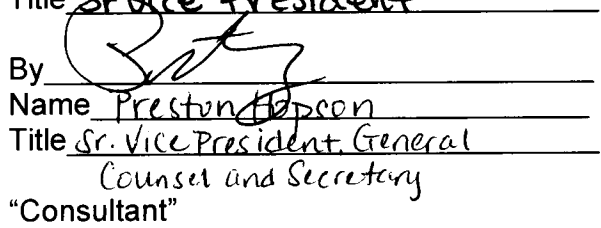 Title Sr Vice President
By
Name Preston Hopson
Title Sr. Vice President, General
Counsel and Secretary
"Consultant"